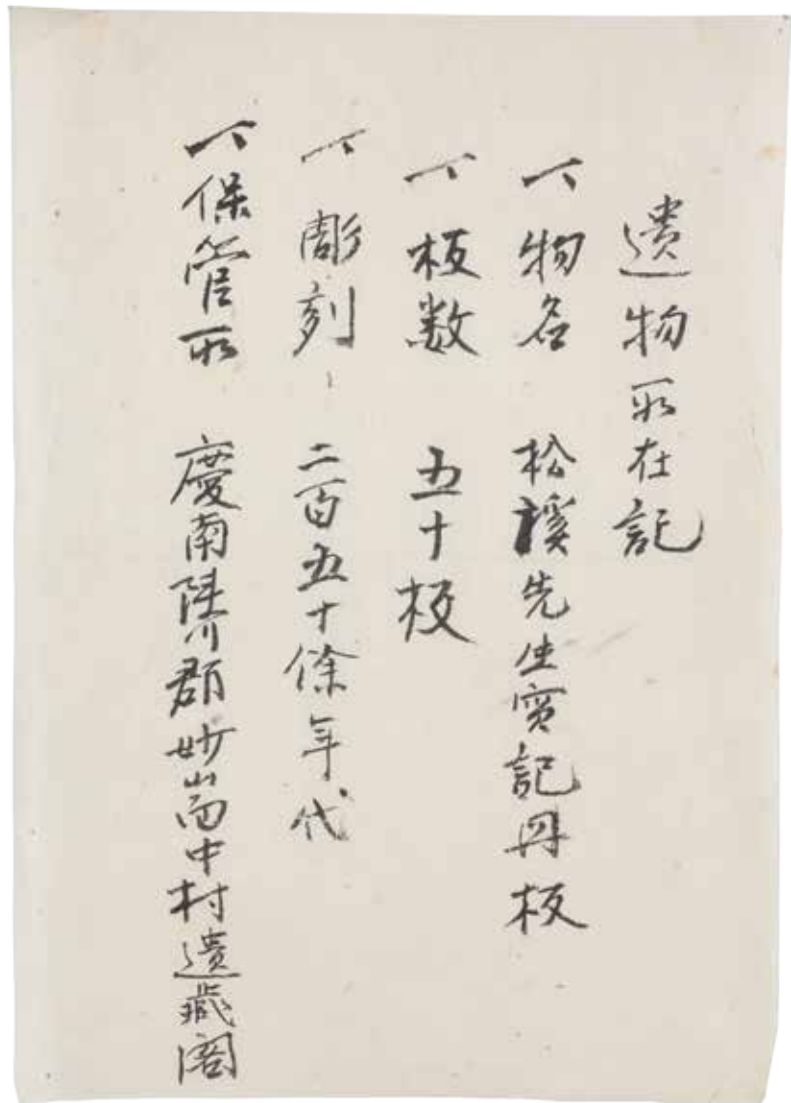 遺物所在記
一、物名 松溪先生實記冊板
一、板数 五十板
一、彫刻 二百五十餘年代
一、保管所 慶南陜川郡妙山面中村遺蔵閣